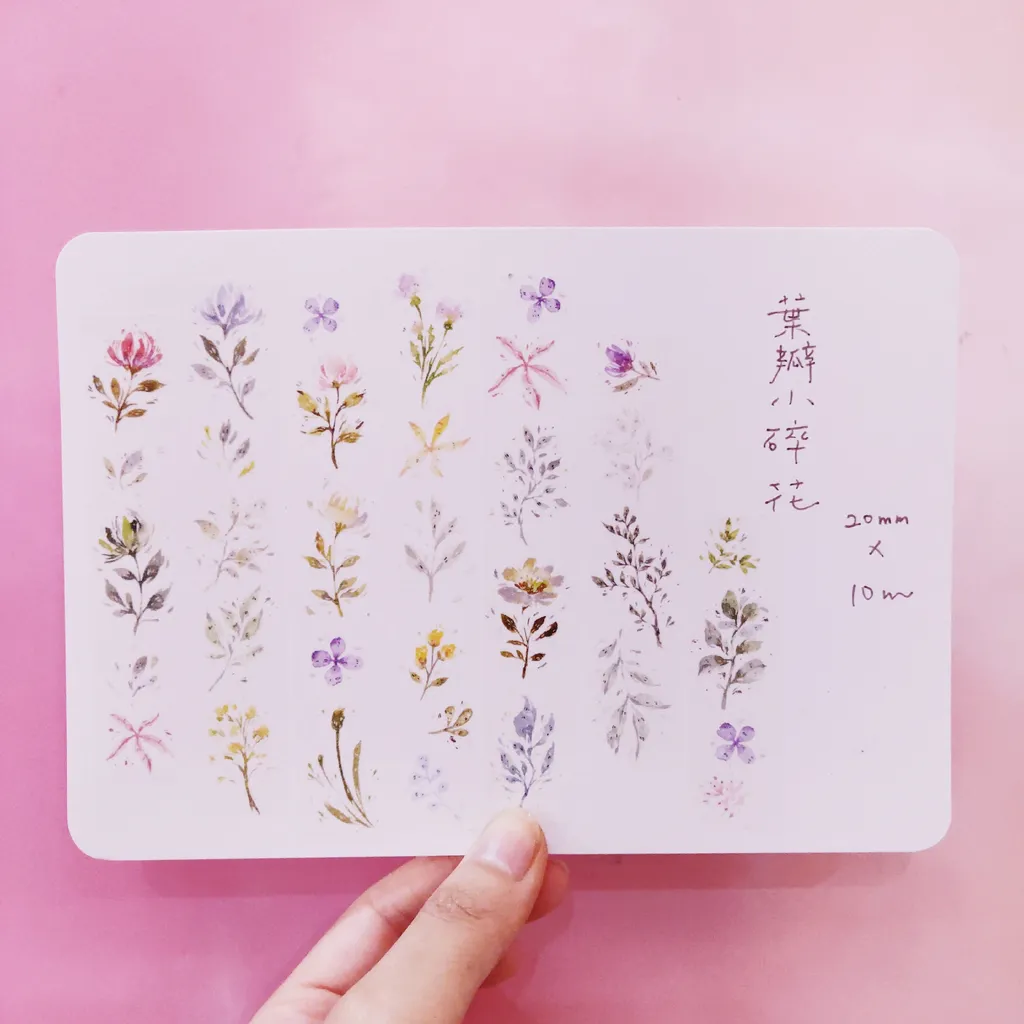 葉瓣小碎花
20mm
x
10m